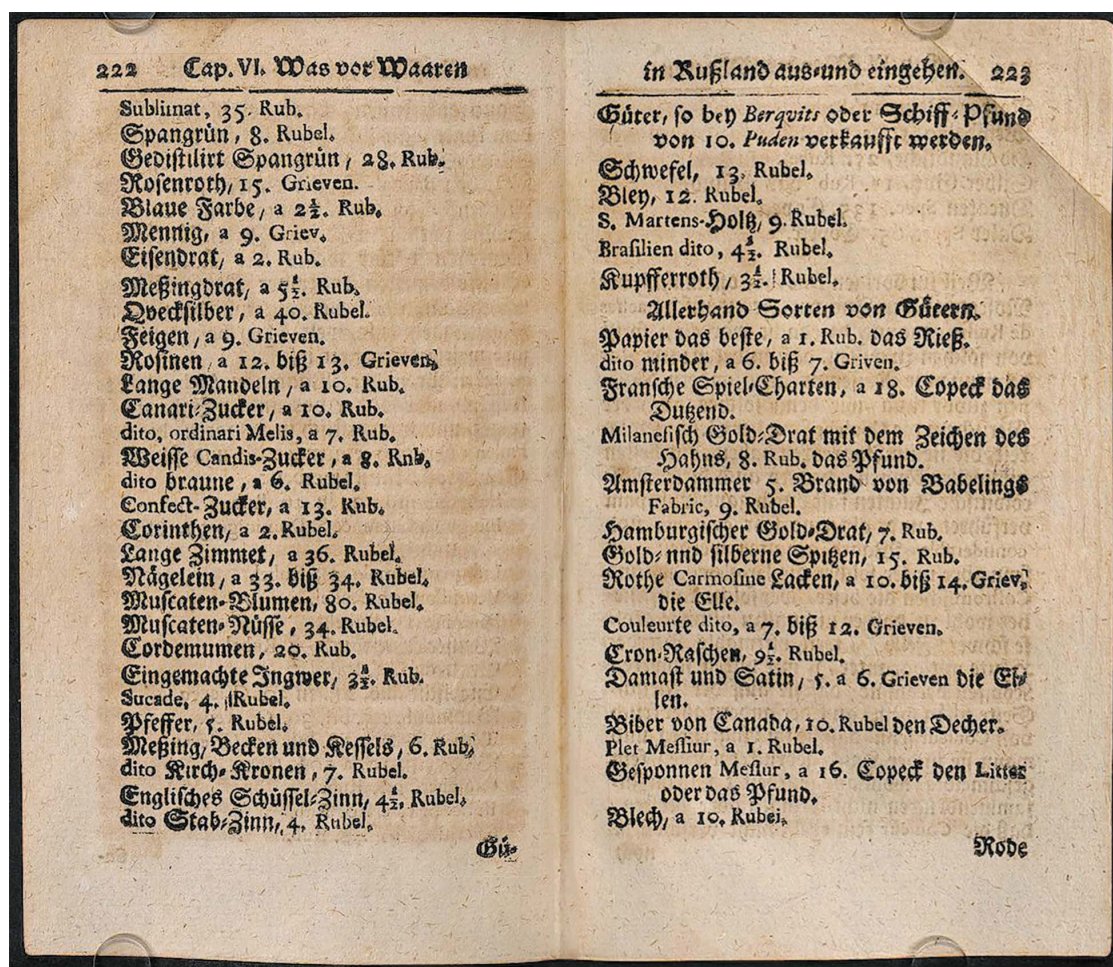 222 Cap. VI. Was vor Waaren
Sublimat, 35. Rub.
Spangrün, 8. Rubel.
Gedistilirt Spangrün, 28. Rub.
Rosenroth, 15. Grieven.
Blaue Farbe, a 2½. Rub.
Mennig, a 9. Griev.
Eisendrat, a 2. Rub.
Meßingdrat, a 5½. Rub.
Qvecksilber, a 40. Rubel.
Feigen, a 9. Grieven.
Rosinen, a 12. biß 13. Grieven.
Lange Mandeln, a 10. Rub.
Canari-Zucker, a 10. Rub.
dito, ordinari Melis, a 7. Rub.
Weisse Candis-Zucker, a 8. Rnb.
dito braune, a 6. Rubel.
Confect-Zucker, a 13. Rub.
Corinthen, a 2. Rubel.
Lange Zimmet, a 36. Rubel.
Nägelein, a 33. biß 34. Rubel.
Muscaten-Blumen, 80. Rubel.
Muscaten-Nüsse, 34. Rubel.
Cordemumen, 20. Rub.
Eingemachte Ingwer, 3½. Rub.
Sucade, 4. Rubel.
Pfeffer, 5. Rubel.
Meßing, Becken und Kessels, 6. Rub.
dito Kirch-Kronen, 7. Rubel.
Englisches Schüssel-Zinn, 4½. Rubel.
dito Stab-Zinn, 4. Rubel.
Gü-
in Rußland aus-und eingehen. 223
Güter, so bey Berqvits oder Schiff-Pfund
von 10. Puden verkaufft werden.
Schwefel, 13. Rubel.
Bley, 12. Rubel.
S. Martens-Holtz, 9. Rubel.
Brasilien dito, 4½. Rubel.
Kupfferroth, 3½. Rubel.
Allerhand Sorten von Gütern.
Papier das beste, a 1. Rub. das Rieß.
dito minder, a 6. biß 7. Griven.
Fransche Spiel-Charten, a 18. Copeck das
Dutzend.
Milanesisch Gold-Drat mit dem Zeichen des
Hahns, 8. Rub. das Pfund.
Amsterdammer 5. Brand von Babelings
Fabric, 9. Rubel.
Hamburgischer Gold-Drat, 7. Rub.
Gold- nnd silberne Spitzen, 15. Rub.
Rothe Carmosine Lacken, a 10. biß 14. Griev.
die Elle.
Couleurte dito, a 7. biß 12. Grieven.
Cron-Raschen, 9½. Rubel.
Damast und Satin, 5. a 6. Grieven die El-
len.
Biber von Canada, 10. Rubel den Decher.
Plet Messiur, a 1. Rubel.
Gesponnen Messur, a 16. Copeck den Litter
oder das Pfund.
Blech, a 10. Rubei.
Rode